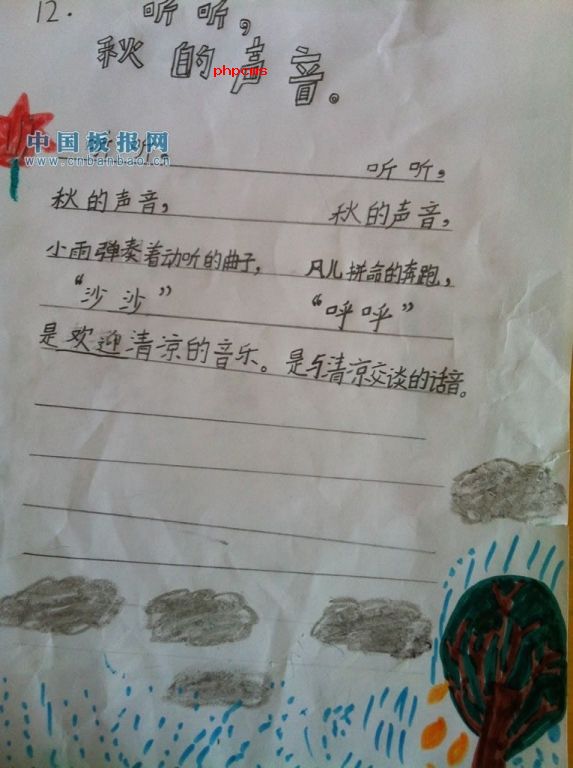 12. 听听，
秋的声音。
phpcms
中国板报网
www.cnbanbao.cn
听听，
听听，
秋的声音，
秋的声音，
小雨弹奏着动听的曲子，
风儿拼命的奔跑，
“沙沙”
“呼呼”
是欢迎清凉的音乐。
是与清凉交谈的话音。